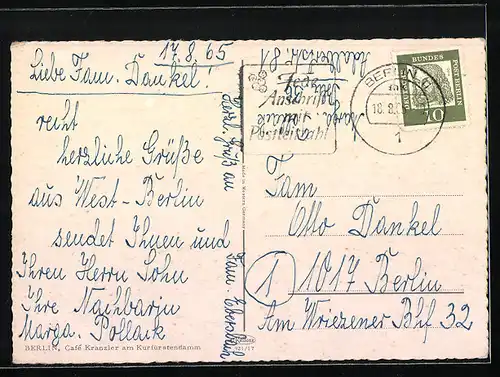 17.8.65
Liebe Fam. Dankel!
recht
herzliche Grüße
aus West-Berlin
sendet Ihnen und
Ihren Herrn Sohn
Ihre Nachbarin
Marga. Pollack
BERLIN, Café Kranzler am Kurfürstendamm
Herzl. Grüß an
Fam.
Made in Western Germany
In
Jede
Anschrift
die
Postleitzahl
BERLIN
1
DEUTSCHE
BUNDES
POST BERLIN
10
Fam
Otto Dankel
1 1017 Berlin
Am Wriezener Bhf 32